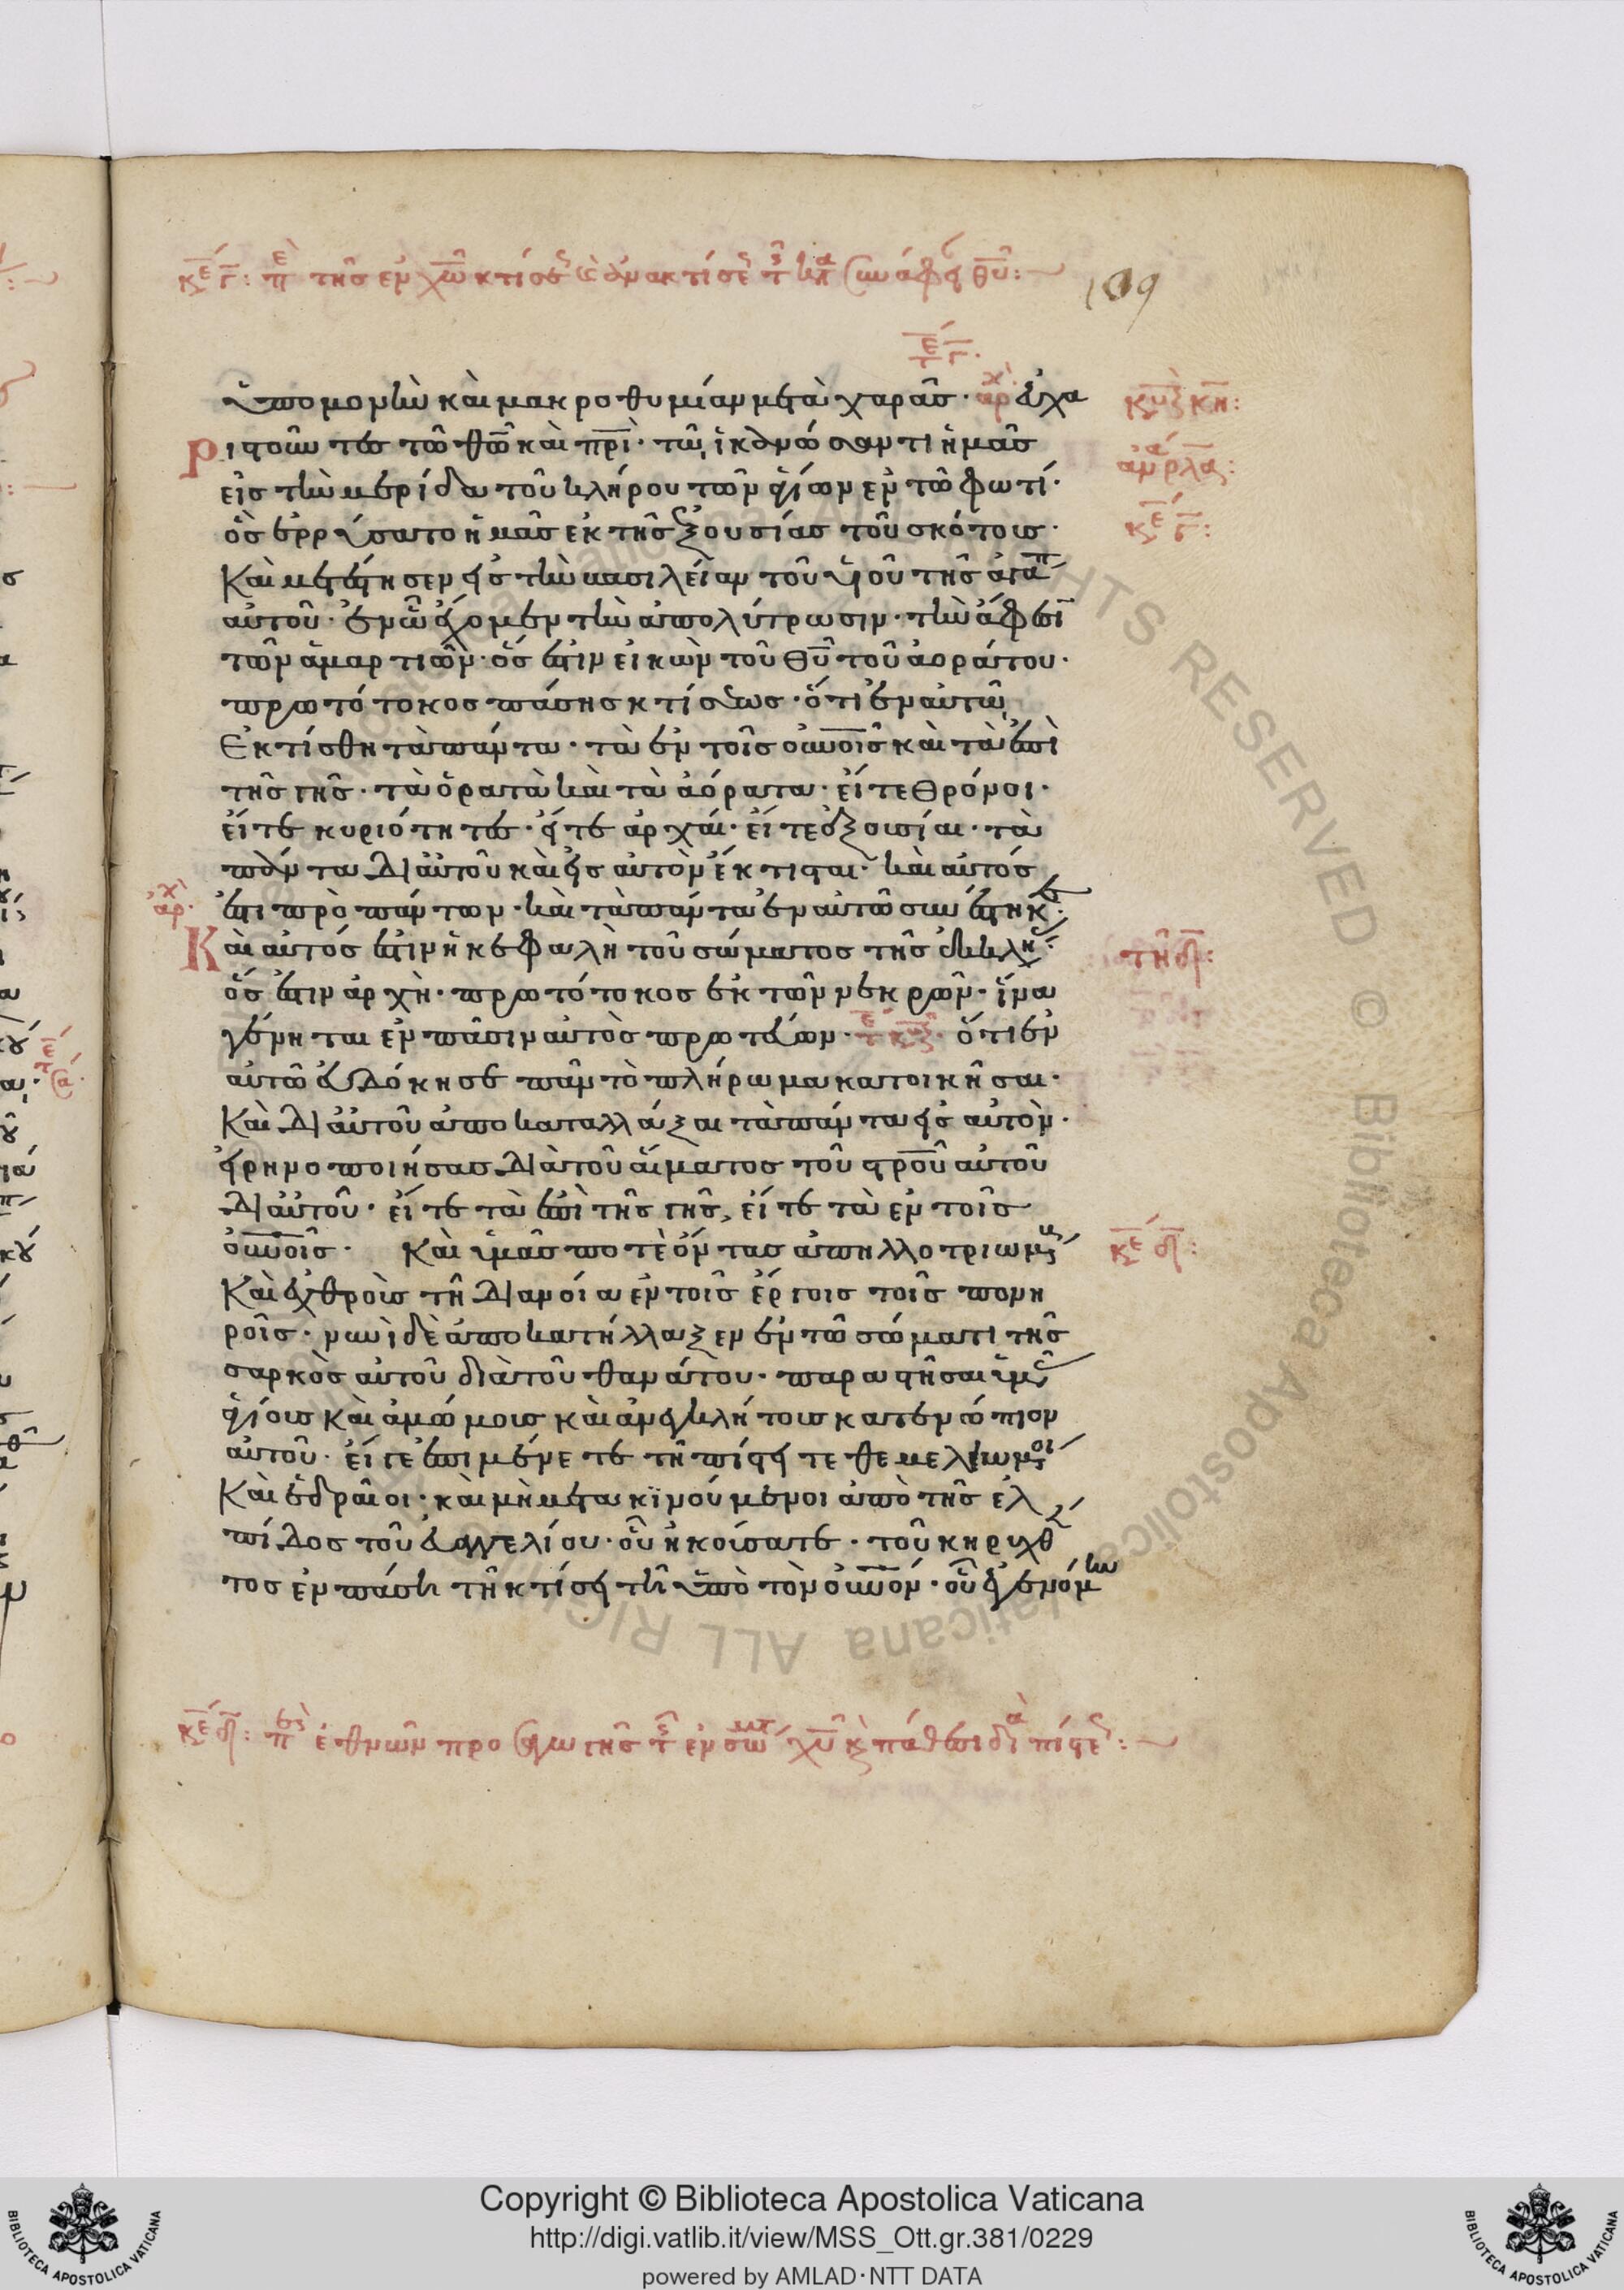 κε γ: π τῆς ἐν χω κτίσε
109
ὑπομονὴν καὶ μακροθυμίαν μετὰ χαρᾶς · ἀρχ εὐχα
ριστοῦντες τῶ θω καὶ πρι · τῶ ἱκανώσαντι ἡμᾶς
εἰς τὴν μερίδα τοῦ κλήρου τῶν ἁγίων ἐν τῶ φωτί ·
ὃς ἐρρύσατο ἡμᾶς ἐκ τῆς ἐξουσίας τοῦ σκότους ·
Καὶ μετέστησεν εἰς τὴν βασιλείαν τοῦ υἱοῦ τῆς ἀγαπ
αὐτοῦ · ἐν ὧ ἔχομεν τὴν ἀπολύτρωσιν · τὴν ἄφεσι
τῶν ἁμαρτιῶν · ὅς ἐστιν εἰκὼν τοῦ θυ τοῦ ἀοράτου ·
πρωτότοκος πάσης κτίσεως · ὅτι ἐν αὐτῶ
Ἐκτίσθη τὰ πάντα · τὰ ἐν τοῖς οὐνοῖς καὶ τὰ ἐπὶ
τῆς γῆς · τὰ ὁρατὰ καὶ τὰ ἀόρατα · εἴτε θρόνοι ·
εἴτε κυριότητες · εἴτε ἀρχαί · εἴτε ἐξουσίαι · τὰ
πάντα δι αὐτοῦ καὶ εἰς αὐτὸν ἔκτισται · καὶ αὐτός
ἀρχ ἐστι πρὸ πάντων · καὶ τὰ πάντα ἐν αὐτῶ συνέστηκε ·
Καὶ αὐτός ἐστιν ἡ κεφαλὴ τοῦ σώματος τῆς ἐκκλη
ὅς ἐστιν ἀρχὴ · πρωτότοκος ἐκ τῶν νεκρῶν · ἵνα
γένηται ἐν πᾶσιν αὐτὸς πρωτεύων · ὅτι ἐν
αὐτῶ εὐδόκησε πᾶν τὸ πλήρωμα κατοικῆσαι ·
Καὶ δι αὐτοῦ ἀποκαταλλάξαι τὰ πάντα εἰς αὐτὸν ·
εἰρηνοποιήσας διὰ τοῦ αἵματος τοῦ στρου αὐτοῦ
δι αὐτοῦ · εἴτε τὰ ἐπὶ τῆς γῆς, εἴτε τὰ ἐν τοῖς
οὐνοῖς · Καὶ ὑμᾶς ποτὲ ὄντας ἀπηλλοτριωμ
Καὶ ἐχθροὺς τῆ διανοία ἐν τοῖς ἔργοις τοῖς πονη
ροῖς · νυνὶ δὲ ἀποκατήλλαξεν ἐν τῶ σώματι τῆς
σαρκὸς αὐτοῦ διὰ τοῦ θανάτου · παραστῆσαι ὑμ
ἁγίους καὶ ἀμώμους καὶ ἀνεγκλήτους κατενώπιον
αὐτοῦ · εἴ γε ἐπιμένετε τῆ πίστει τεθεμελιωμοι
Καὶ ἑδραῖοι · καὶ μὴ μετακινούμενοι ἀπὸ τῆς ἐλ
πίδος τοῦ εὐαγγελίου · οὗ ἠκούσατε · τοῦ κηρυχθ
τος ἐν πάση τῆ κτίσει τῆ ὑπὸ τὸν οὐνόν · οὗ ἐγενόμην
κυ κη:
ρλα:
κε γ:
τῆ δ:
κε δ:
κε δ: π ἐθνῶν προσαγωγῆς
Copyright © Biblioteca Apostolica Vaticana
http://digi.vatlib.it/view/MSS_Ott.gr.381/0229
powered by AMLAD·NTT DATA
BIBLIOTECA APOSTOLICA VATICANA
BIBLIOTECA APOSTOLICA VATICANA